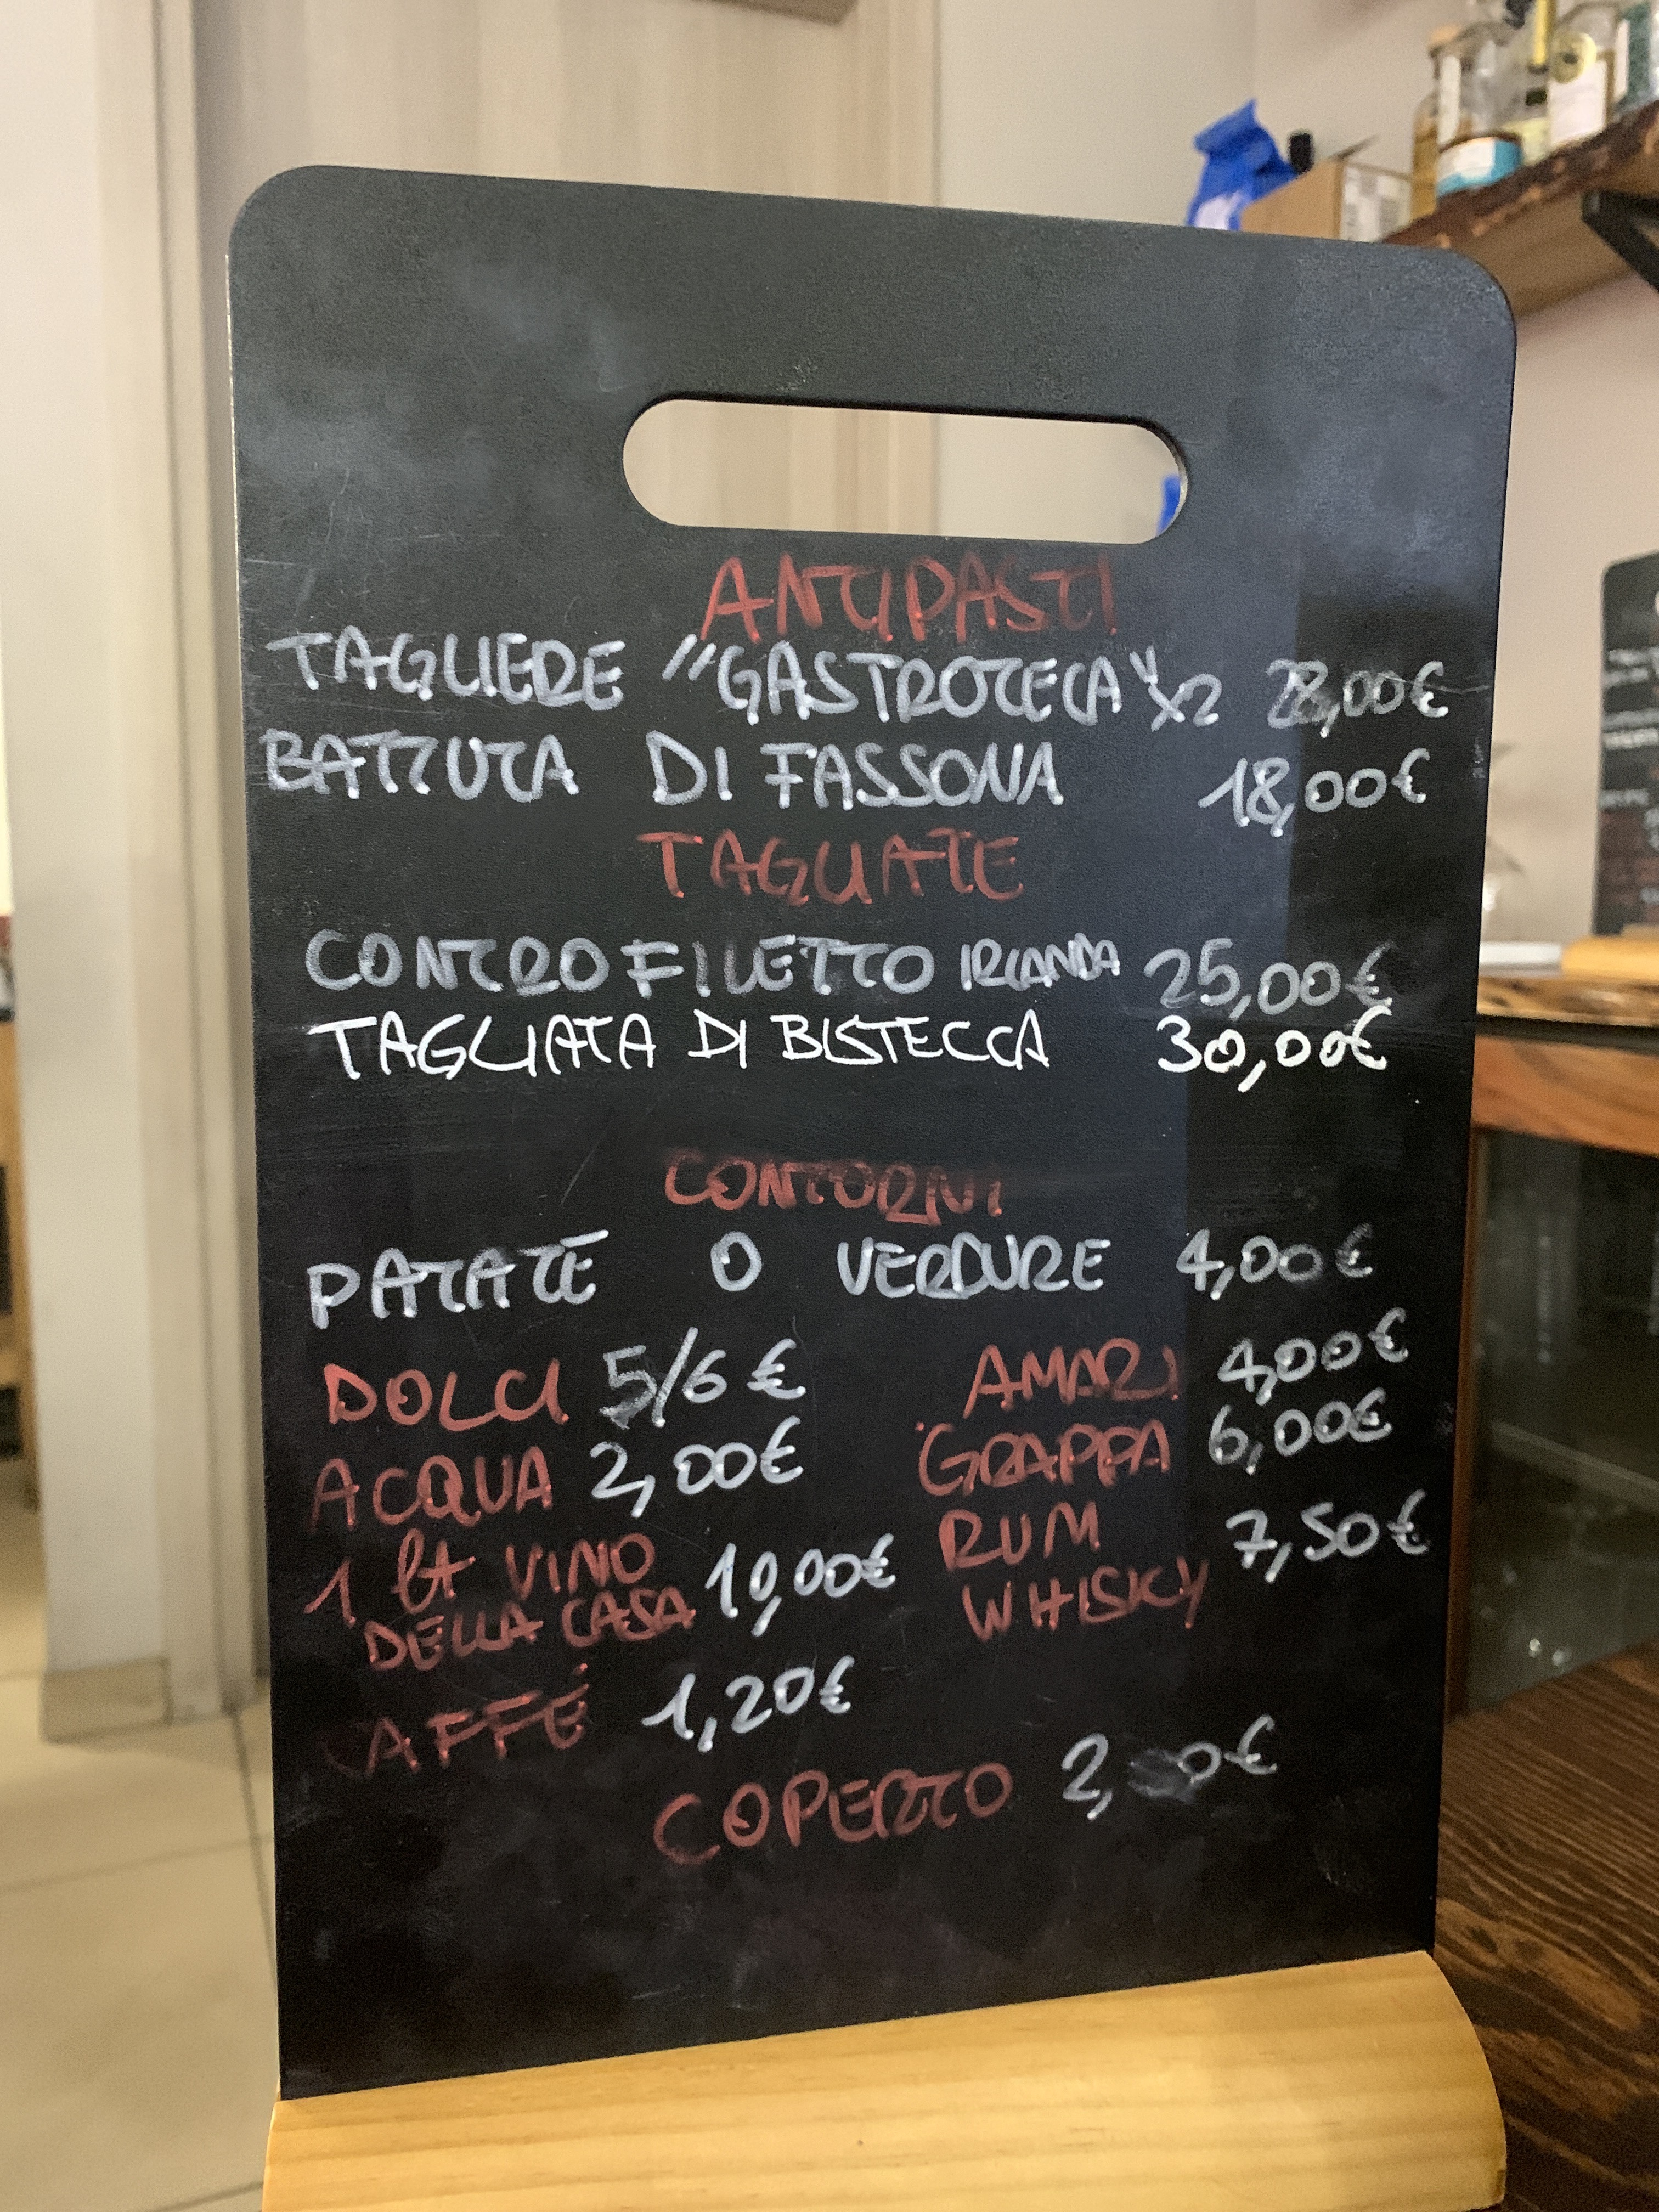 ANTIPASTI
TAGLIERE "GASTROTECA" x2 28,00€
BATTUTA DI FASSONA 18,00€
TAGLIATE
CONTROFILETTO IRLANDA 25,00€
TAGLIATA DI BISTECCA 30,00€
CONTORNI
PATATE O VERDURE 4,00€
DOLCI 5/6 €
ACQUA 2,00€
1 lt VINO
DELLA CASA 10,00€
CAFFÉ 1,20€
AMARI 4,00€
GRAPPA 6,00€
RUM
WHISKY 7,50€
COPERTO